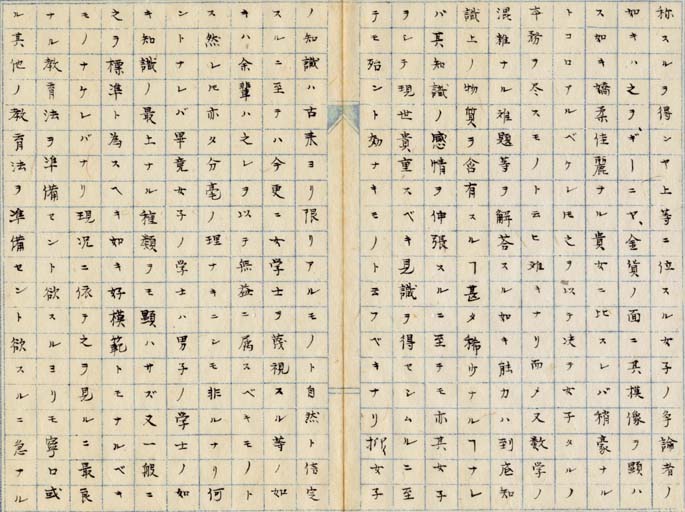 称スルヲ得ンヤ上等ニ位スル女子ノ争論者ノ
如キハ之ヲギーニヤ、金貨ノ面ニ其模像ヲ顕ハ
ス如キ嬌柔佳麗ナル貴女ニ比スレバ稍豪ナル
トコロアルベケレ𪜈之ヲ以テ决テ女子タルノ
本務ヲ尽スモノト云ヒ難キナリ而メ又数学ノ
混雑ナル難題等ヲ解答スル如キ能力ハ到底知
識上ノ物質ヲ含有スルヿ甚タ稀少ナルヿナレ
バ其知識ノ感情ヲ伸張スルニ至テモ亦其女子
ヲシテ現世貴重スベキ見識ヲ得セシムルニ至
テモ殆ント効ナキモノト云フベキナリ抑女子
ノ知識ハ古来ヨリ限リアルモノト自然ト信定
スルニ至テハ今更ニ女学士ヲ蔑視スル等ノ如
キハ余輩ハ之レヲ以テ無益ニ属スベキモノト
ス然レ𪜈亦タ分毫ノ理ナキニシモ非ルナリ何
ントナレバ畢竟女子ノ学士ハ男子ノ学士ノ如
キ知識ノ最上ナル種類ヲモ顕ハサズ又一般ニ
之ヲ標準ト為スヘキ如キ好模範トモナルベキ
モノナケレバナリ現况ニ依テ之ヲ見ルニ最良
ナル教育法ヲ準備セント欲スルヨリモ寧ロ或
ル其他ノ教育法ヲ準備セント欲スルニ急ナル